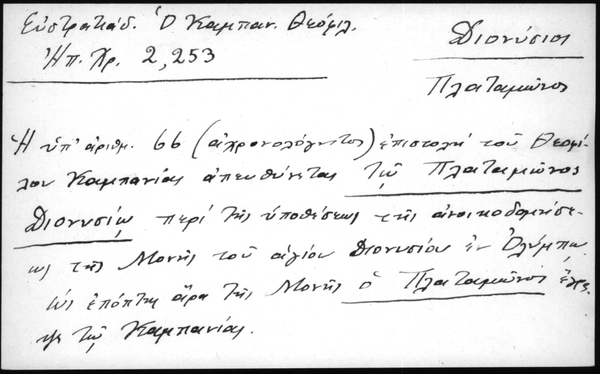 Εὐστρατιάδ. Ὁ Καμπαν. Θεόφιλ.
Ἠπ. Χρ. 2,253
Διονύσιος
Πλαταμῶνος
Ἡ ὑπ' ἀριθμ. 66 (ἀχρονολόγητος) ἐπιστολὴ τοῦ Θεοφί-
λου Καμπανίας ἀπευθύνεται τῷ Πλαταμῶνος
Διονυσίῳ περὶ τῆς ὑποθέσεως τῆς ἀνοικοδομήσε-
ως τῆς Μονῆς τοῦ ἁγίου Διονυσίου ἐν Ὀλύμπῳ.
Ὡς ἐπόπτης ἄρα τῆς Μονῆς ὁ Πλαταμῶνος ἔγρα-
ψε τῷ Καμπανίας.